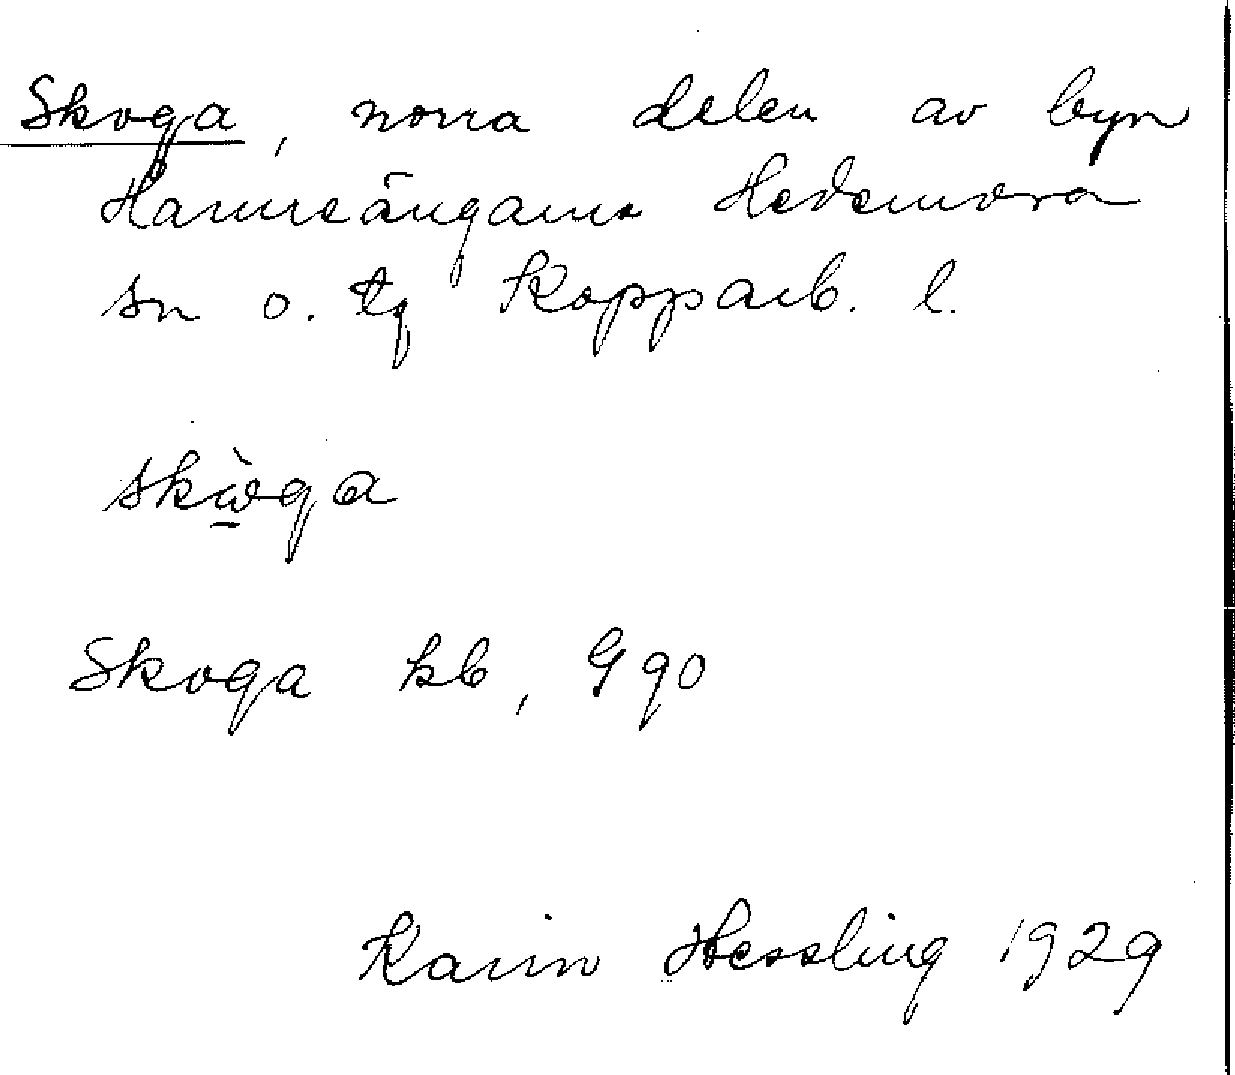 Skoga, norra delen av byn
Hamreängarna Hedemora
sn o. tg Kopparb. l.
skὼ̲ga
Skoga kb, G 90
Karin Hessling 1929